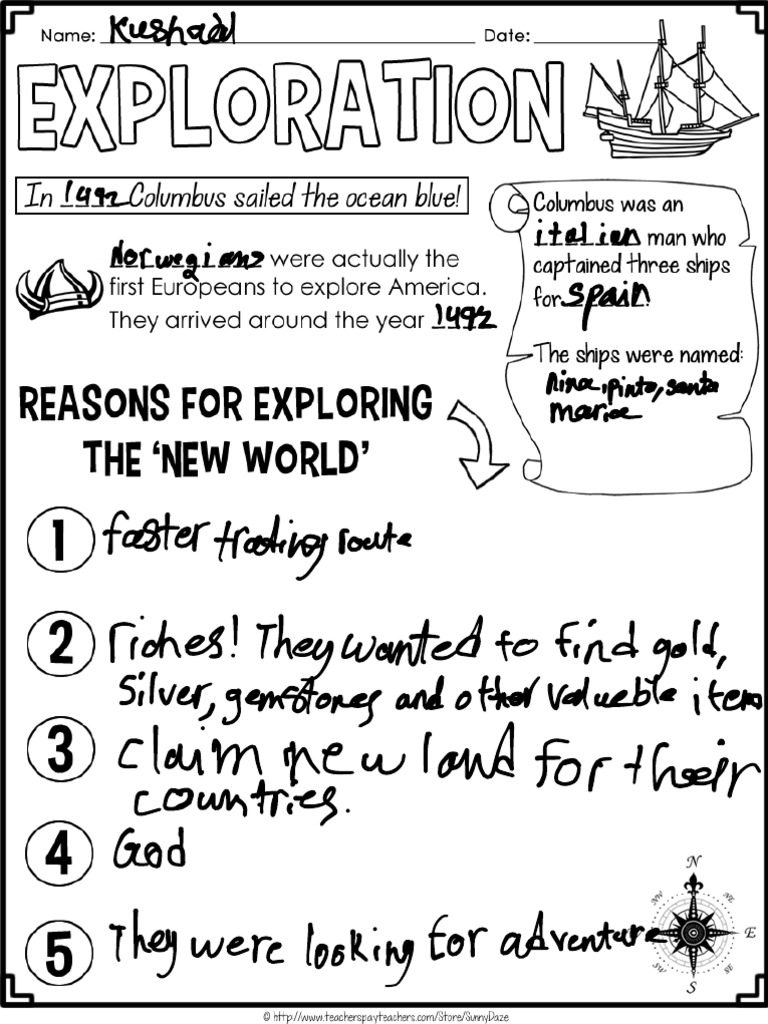 Name: Kushadd Date:
EXPLORATION
In 1492 Columbus sailed the ocean blue!
Norwegians were actually the
first Europeans to explore America.
They arrived around the year 1492
Columbus was an
italian man who
captained three ships
for spain.
The ships were named:
nina, pinta, santa
maria
REASONS FOR EXPLORING
THE 'NEW WORLD'
1 faster trading route
2 riches! They wanted to find gold,
silver, gemstones and other valueble item
3 claim new land for their
countries.
4 God
5 They were looking for adventure
N
NW NE
E
SW SE
S
© http://www.teacherspayteachers.com/Store/SunnyDaze